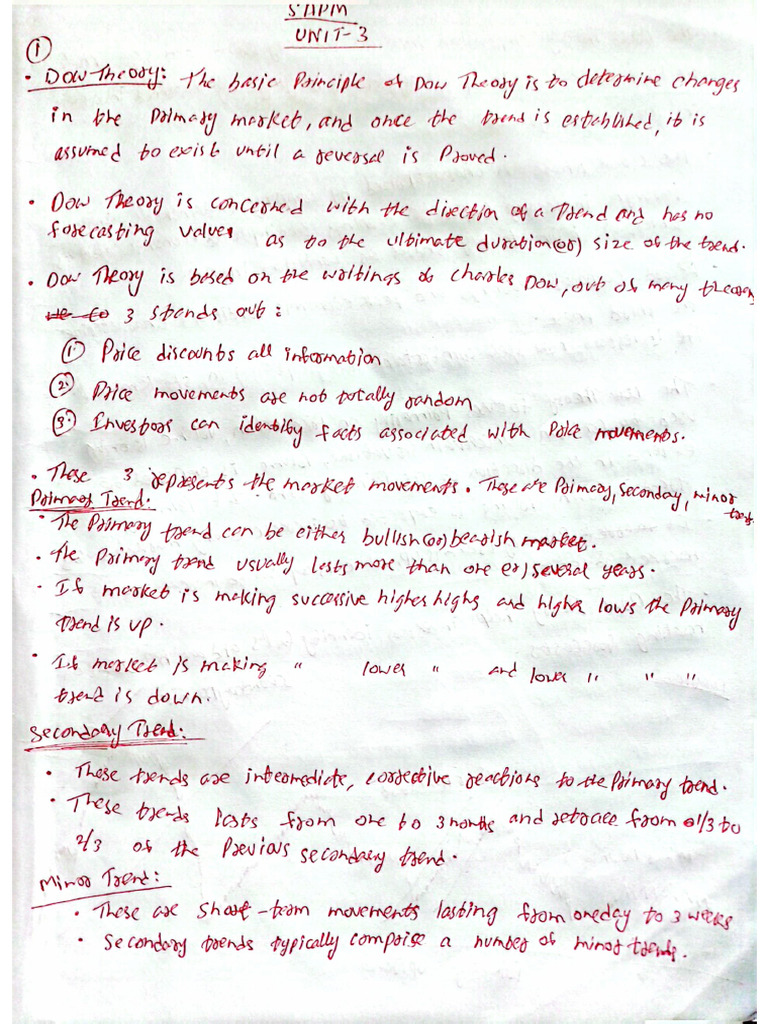 SAPM
UNIT-3
①
• Dow Theory: The basic Principle of Dow Theory is to determine changes
in the Primary market, and once the trend is established, it is
assumed to exist until a reversal is Proved.
• Dow Theory is concerned with the direction of a Trend and has no
forecasting value as to the ultimate duration(or) size of the trend.
• Dow Theory is based on the writings of Charles Dow, out of many theorem
3 stands out:
① Price discounts all information
② Price movements are not totally random
③ Investors can identify facts associated with Price movements.
• These 3 represents the market movements. These are Primary, seconday, minor
trend.
Primary Trend.
• The Primary trend can be either bullish(or) bearish market.
• The Primary trend usually lasts more than one or) several years.
• If market is making successive higher highs and higher lows the Primary
trend is up.
• If market is making " lower " and lower " " "
trend is down.
Secondary Trend:
• These trends are intermediate, corrective reactions to the Primary trend.
• These trends lasts from one to 3 months and retrace from 1/3 to
2/3 of the Previous secondary trend.
Minor Trend:
• These are short-term movements lasting from oneday to 3 weeks
• Secondary trends typically comprise a number of minor trends.